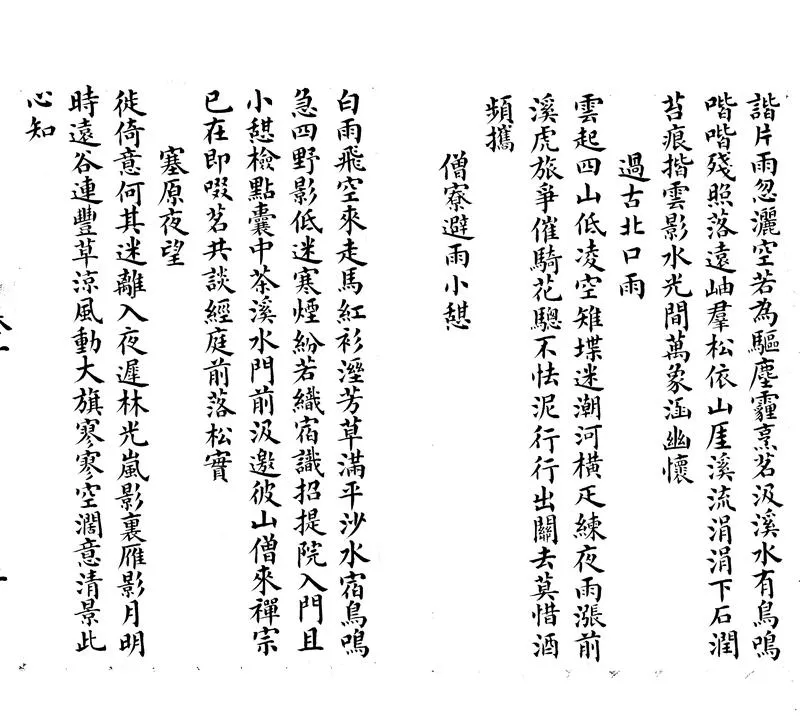 諧片雨忽灑空若為驅塵霾烹茗汲溪水有鳥鳴
喈喈殘照落遠岫羣松依山厓溪流涓涓下石澗
苔痕揩雲影水光間萬象涵幽懷
過古北口雨
雲起四山低凌空雉堞迷潮河橫疋練夜雨漲前
溪虎旅爭催騎花驄不怯泥行行出關去莫惜酒
頻攜
僧寮避雨小憩
白雨飛空來走馬紅衫溼芳草滿平沙水宿鳥鳴
急四野影低迷寒煙紛若織宿識招提院入門且
小憩檢點囊中茶溪水門前汲邀彼山僧來禪宗
已在即啜茗共談經庭前落松實
塞原夜望
徙倚意何其迷離入夜遲林光嵐影裏雁影月明
時遠谷連豐草涼風動大旗寥寥空濶意清景此
心知